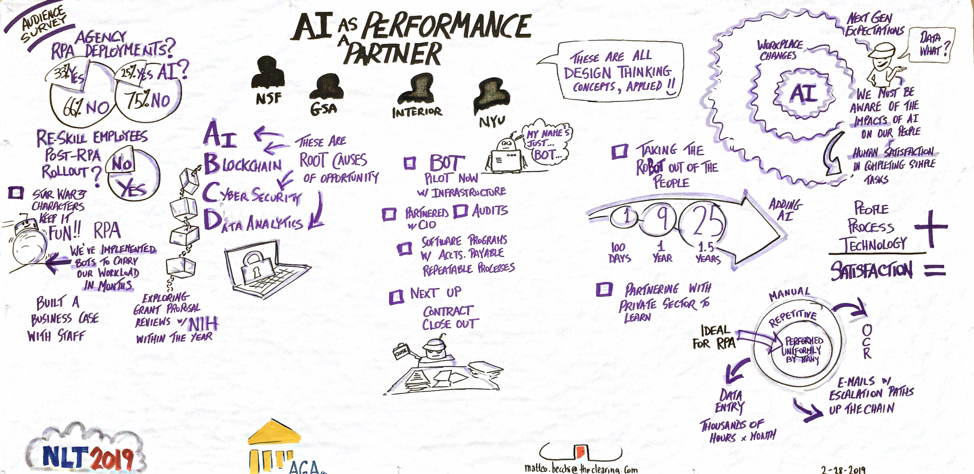 AUDIENCE
SURVEY
AI AS A PERFORMANCE
PARTNER
AGENCY
RPA DEPLOYMENTS?
33% YES
66% NO
25% YES
AI?
75% NO
RE-SKILL EMPLOYEES
POST-RPA
ROLLOUT?
NO
YES
STAR WARS
CHARACTERS
KEEP IT
FUN!! RPA
WE'VE IMPLEMENTED
BOTS TO CARRY
OUR WORKLOAD
IN MONTHS.
BUILT A
BUSINESS CASE
WITH STAFF
EXPLORING
GRANT PROPOSAL
REVIEWS W/ NIH
WITHIN THE YEAR
NSF
GSA
INTERIOR
NYU
AI
BLOCKCHAIN
CYBER SECURITY
DATA ANALYTICS
THESE ARE
ROOT CAUSES
OF OPPORTUNITY
MY NAME'S
JUST...
BOT...
BOT
PILOT NOW
W/ INFRASTRUCTURE
PARTNERED
W/ CIO
AUDITS
SOFTWARE PROGRAMS
W/ ACCTS. PAYABLE
REPEATABLE PROCESSES
NEXT UP
CONTRACT
CLOSE OUT
THESE ARE ALL
DESIGN THINKING
CONCEPTS, APPLIED!!
TAKING THE
ROBOT OUT OF THE
PEOPLE
1
9
25
100
DAYS
1
YEAR
1.5
YEARS
ADDING
AI
PARTNERING WITH
PRIVATE SECTOR TO
LEARN
NEXT GEN
EXPECTATIONS
WORKPLACE
CHANGES
AI
DATA
WHAT?
WE MUST BE
AWARE OF THE
IMPACTS OF AI
ON OUR PEOPLE
+
HUMAN SATISFACTION
IN COMPLETING SIMPLE
TASKS
PEOPLE
PROCESS
TECHNOLOGY
+
SATISFACTION =
MANUAL
REPETITIVE
PERFORMED
UNIFORMLY
BY MANY
IDEAL
FOR RPA
OCR
DATA
ENTRY
THOUSANDS OF
HOURS x MONTH
E-MAILS W/
ESCALATION PATHS
UP THE CHAIN
NLT 2019
AGA
2-28-2019